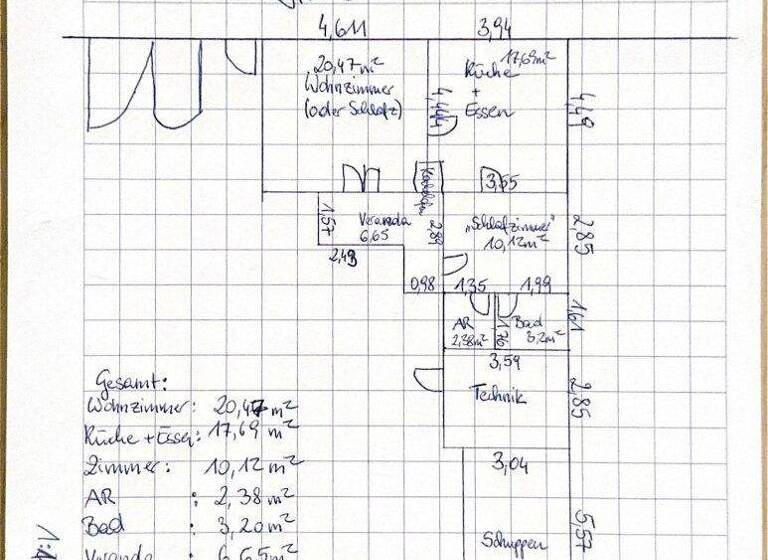 4,611
3,94
20,47 m²
Wohnzimmer
(oder Schlafz)
17,69 m²
Küche
+
Essen
4,44
4,49
3,55
1,57
Veranda
6,65
2,89
2,49
"Schlafzimmer"
10,12 m²
2,85
0,98
1,35
1,99
AR
2,38 m²
1,76
Bad
3,2 m²
1,61
3,59
Technik
2,85
3,04
Schuppen
5,57
Gesamt:
Wohnzimmer: 20,47 m²
Küche + Essen: 17,69 m²
Zimmer: 10,12 m²
AR : 2,38 m²
Bad : 3,20 m²
Veranda : 6,65 m²